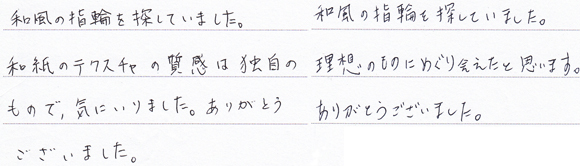 和風の指輪を探していました。
和紙のテクスチャの質感は独自の
もので、気にいりました。ありがとう
ございました。
和風の指輪を探していました。
理想のものにめぐり会えたと思います。
ありがとうございました。